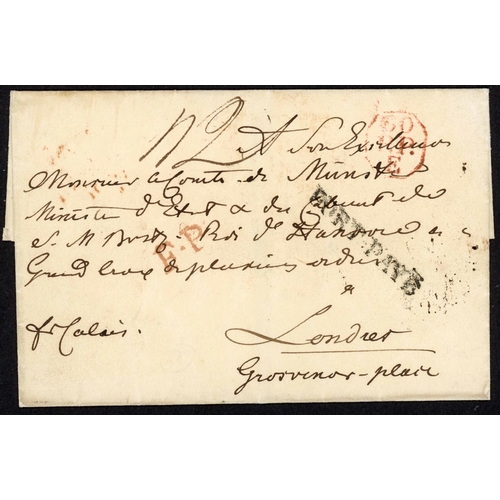 N2 A Son Excellence
Monsieur le Comte de Münster
Ministre d'Etat & du Cabinet de
S. M. Brit. Roi d' Hanovre
Grand Croix de plusieurs ordres
à
fr Calais. Londres
Grosvenor-place
F.P.
PORT PAYÉ
60